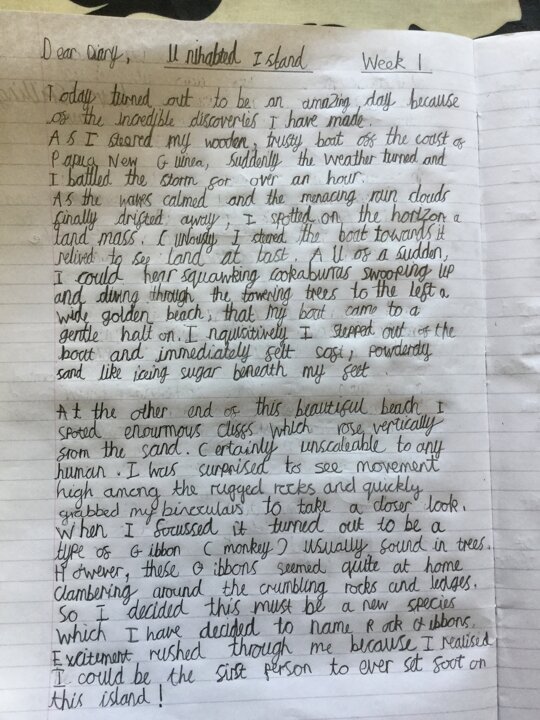 Dear Diary, Uninhabted Island Week 1
Today turned out to be an amazing day because
of the incredible discoveries I have made.
As I steered my wooden, trusty boat off the coast of
Papua New Guinea, suddenly the weather turned and
I battled the storm for over an hour.
As the waves calmed and the menacing rain clouds
finally drifted away, I spotted on the horizon a
land mass. Curiously I steered the boat towards it
relived to see land at last. All of a sudden,
I could hear squawking cookaburras swooping up
and diving through the towering trees to the left a
wide golden beach, that my boat came to a
gentle halt on. Inquisitively I stepped out of the
boat and immediately felt soft, powderdy
sand like iceing sugar beneath my feet.
At the other end of this beautiful beach I
spoted enourmous cliffs which rose vertically
from the sand. Certainly unscaleable to any
human. I was surprised to see movement
high among the rugged rocks and quickly
grabbed my binoculars to take a closer look.
When I focussed it turned out to be a
type of Gibbon (monkey) usually found in trees.
However, these Gibbons seemed quite at home
clambering around the crumbling rocks and ledges.
So I decided this must be a new species
which I have decided to name Rock Gibbons.
Excitement rushed through me because I realised
I could be the first person to ever set foot on
this island!